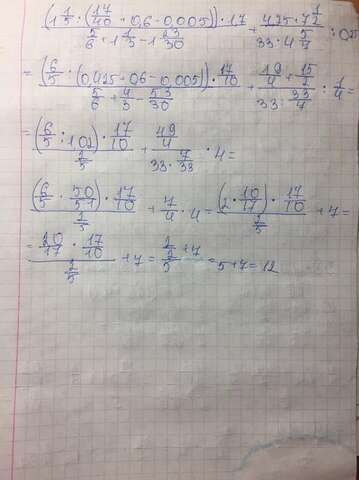 (1 1/5 : (17/40 + 0,6 - 0,005)) · 17 / (5/6 + 1 1/3 - 1 23/30) + (4,75 + 7 1/2) / (33 : 4 5/7) : 0,25
= (6/5 : (0,425 + 0,6 - 0,005)) · 17/10 / (5/6 + 4/3 - 53/30) + (19/4 + 15/2) / (33 : 33/7) : 1/4 =
= (6/5 : 1,02) · 17/10 / (2/5) + (49/4) / (33 · 7/33) · 4 =
(6/5 · 50/51) · 17/10 / (2/5) + 7/4 · 4 = (2 · 10/17) · 17/10 / (2/5) + 7 =
= 20/17 · 17/10 / (2/5) + 7 = 2 / (2/5) + 7 = 5 + 7 = 12